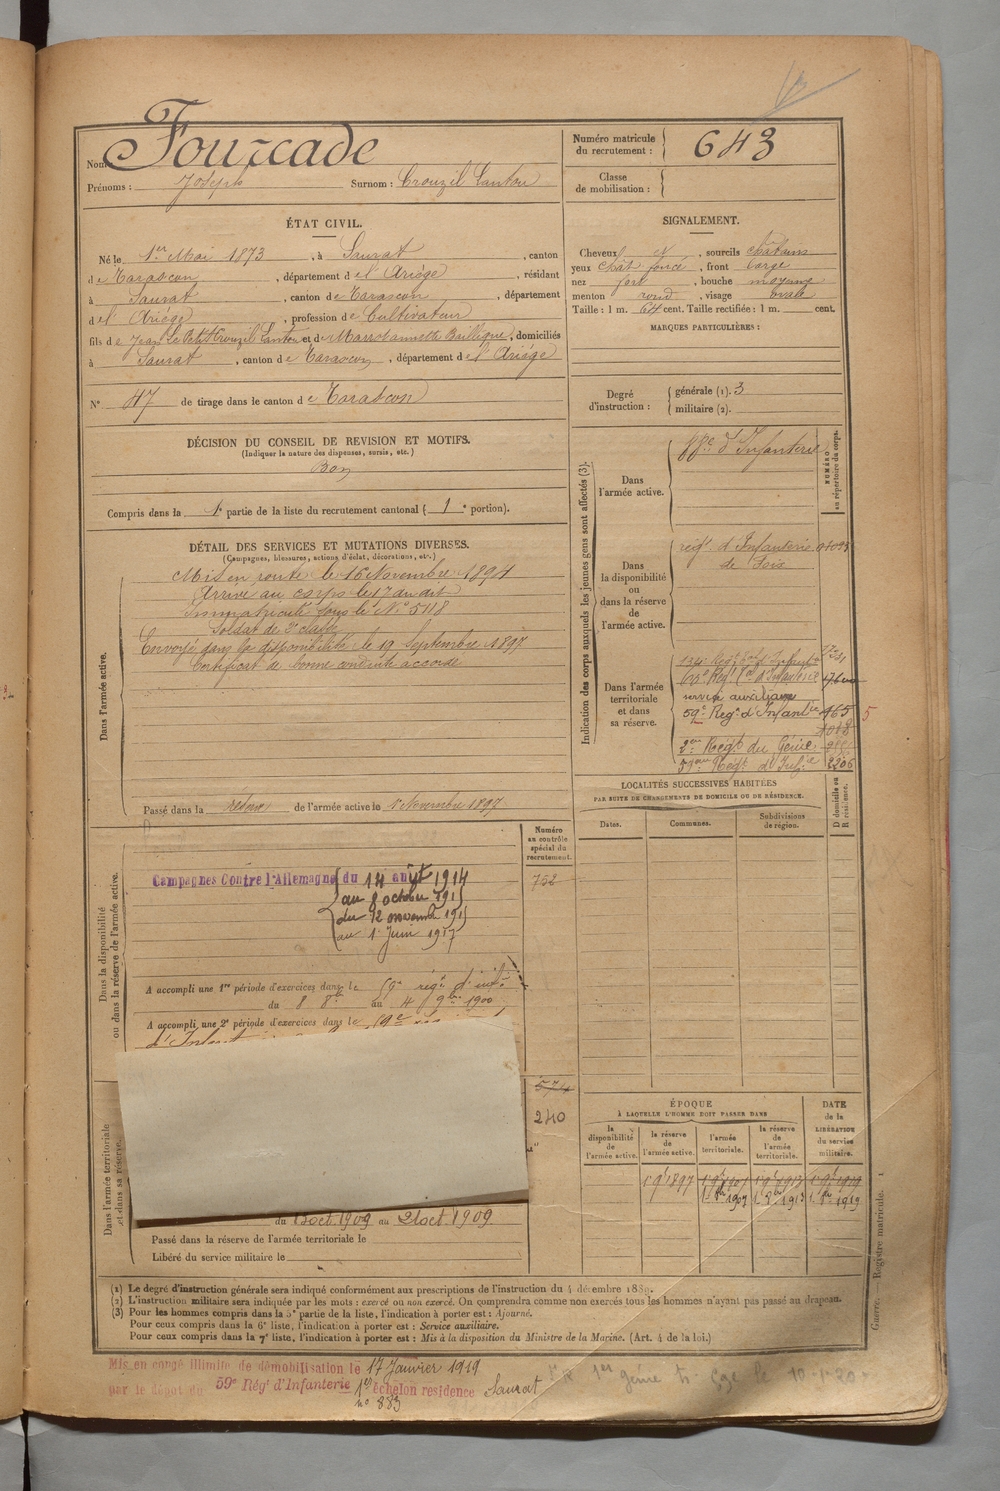 Nom : Fourcade
Prénoms : Joseph Surnom : Crouzil Canton
Numéro matricule du recrutement : 643
Classe de mobilisation :
ÉTAT CIVIL.
Né le 1er Mai 1873, à Saurat, canton
de Tarascon, département de l'Ariége, résidant
à Saurat, canton de Tarascon, département
de l'Ariége, profession de Cultivateur
fils de Jean Le Petit Crouzil Canton et de domiciliés
à Saurat, canton de Tarascon, département de l'Ariége
N° 47 de tirage dans le canton de Tarascon
SIGNALEMENT.
Cheveux et, sourcils châtains
yeux chât. foncé, front large
nez fort, bouche moyenne
menton rond, visage ovale
Taille : 1 m. 64 cent. Taille rectifiée : 1 m. cent.
MARQUES PARTICULIÈRES :
Degré d'instruction : générale (1). 3
militaire (2).
DÉCISION DU CONSEIL DE REVISION ET MOTIFS.
(Indiquer la nature des dispenses, sursis, etc.)
Bon
Compris dans la 1e partie de la liste du recrutement cantonal (1e portion).
DÉTAIL DES SERVICES ET MUTATIONS DIVERSES.
(Campagnes, blessures, actions d'éclat, décorations, etc.)
Dans l'armée active.
Mis en route le 16 Novembre 1894
Arrivé au corps le 17 au dit
Immatriculé sous le N° 5118
Soldat de 2e classe
Envoyé dans la disponibilité le 19 Septembre 1897
Certificat de bonne conduite accordé
Passé dans la réserve de l'armée active le 1 Novembre 1897
Indication des corps auxquels les jeunes gens sont affectés (3).
NUMÉRO au répertoire du corps.
Dans l'armée active.
88e d'Infanterie
Dans la disponibilité ou dans la réserve de l'armée active.
régt d'Infanterie
de Foix
Dans l'armée territoriale et dans sa réserve.
service auxiliaire
59e Regt d'Infanterie 465 5
2me Régt du Génie
59me Régt d'Infie 2206
LOCALITÉS SUCCESSIVES HABITÉES
PAR SUITE DE CHANGEMENTS DE DOMICILE OU DE RÉSIDENCE.
Dates.
Communes.
Subdivisions de région.
D domicile ou R résidence.
Dans la disponibilité ou dans la réserve de l'armée active.
Numéro au contrôle spécial du recrutement.
752
Campagnes Contre l'Allemagne du 14 août 1914
au 8 octobre 191
du 12 novembre 191
au 1 Juin 1917
A accompli une 1re période d'exercices dans le régt d'infie
du 8 8bre au 4 9bre 1900
A accompli une 2e période d'exercices dans le 59e
Dans l'armée territoriale et dans sa réserve.
574
240
du 13 oct 1909 au 21 oct 1909
Passé dans la réserve de l'armée territoriale le
Libéré du service militaire le
ÉPOQUE
À LAQUELLE L'HOMME DOIT PASSER DANS
la disponibilité de l'armée active.
la réserve de l'armée active.
l'armée territoriale.
la réserve de l'armée territoriale.
DATE de la LIBÉRATION du service militaire.
1 9bre 1897
1907 1913 1919
(1) Le degré d'instruction générale sera indiqué conformément aux prescriptions de l'instruction du 4 décembre 1889.
(2) L'instruction militaire sera indiquée par les mots : exercé ou non exercé. On comprendra comme non exercés tous les hommes n'ayant pas passé au drapeau.
(3) Pour les hommes compris dans la 5e partie de la liste, l'indication à porter est : Ajourné.
Pour ceux compris dans la 6e liste, l'indication à porter est : Service auxiliaire.
Pour ceux compris dans la 7e liste, l'indication à porter est : Mis à la disposition du Ministre de la Marine. (Art. 4 de la loi.)
Guerre. — Registre matricule. 1
Mis en congé illimité de démobilisation le 17 Janvier 1919
par le dépôt du 59e Rég' d'Infanterie 1er échelon residence Saurat
n° 883
1er génie 10-1-20